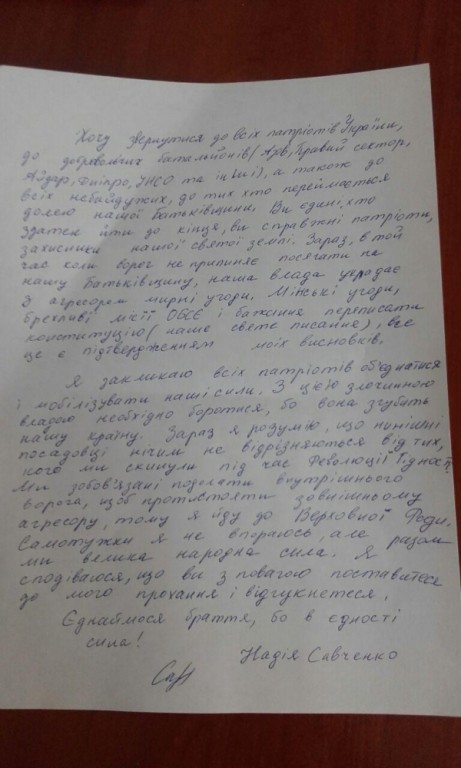 Хочу звернутися до всіх патріотів України,
до добровольчих батальйонів (Азов, Правий сектор,
Айдар, Дніпро, УНСО та інші), а також до
всіх небайдужих, до тих хто переймається
долею нашої Батьківщини. Ви єдині, хто
здатен йти до кінця, ви справжні патріоти,
захисники нашої святої землі. Зараз, в той
час коли ворог не припиняє посягати на
нашу Батьківщину, наша влада укладає
з агресором мирні угоди. Мінські угоди,
брехливі місії ОБСЄ і бажання переписати
конституцію (наше святе писание), все
це є підтвердженням моїх висновків.
Я закликаю всіх патріотів об'єднатися
і мобілізувати наші сили. З цією злочинною
владою необхідно боротися, бо вона згубить
нашу країну. Зараз я розумію, що нинішні
посадовці нічим не відрізняються від тих,
кого ми скинули під час Революції Гідності.
Ми зобов'язані подолати внутрішнього
ворога, щоб протистояти зовнішньому
агресору, тому я йду до Верховної Ради.
Самотужки я не впораюсь, але разом
ми велика народна сила. Я
сподіваюся, що ви з повагою поставитеся
до мого прохання і відгукнетеся.
Єднаймося браття, бо в єдності
сила!
Надія Савченко